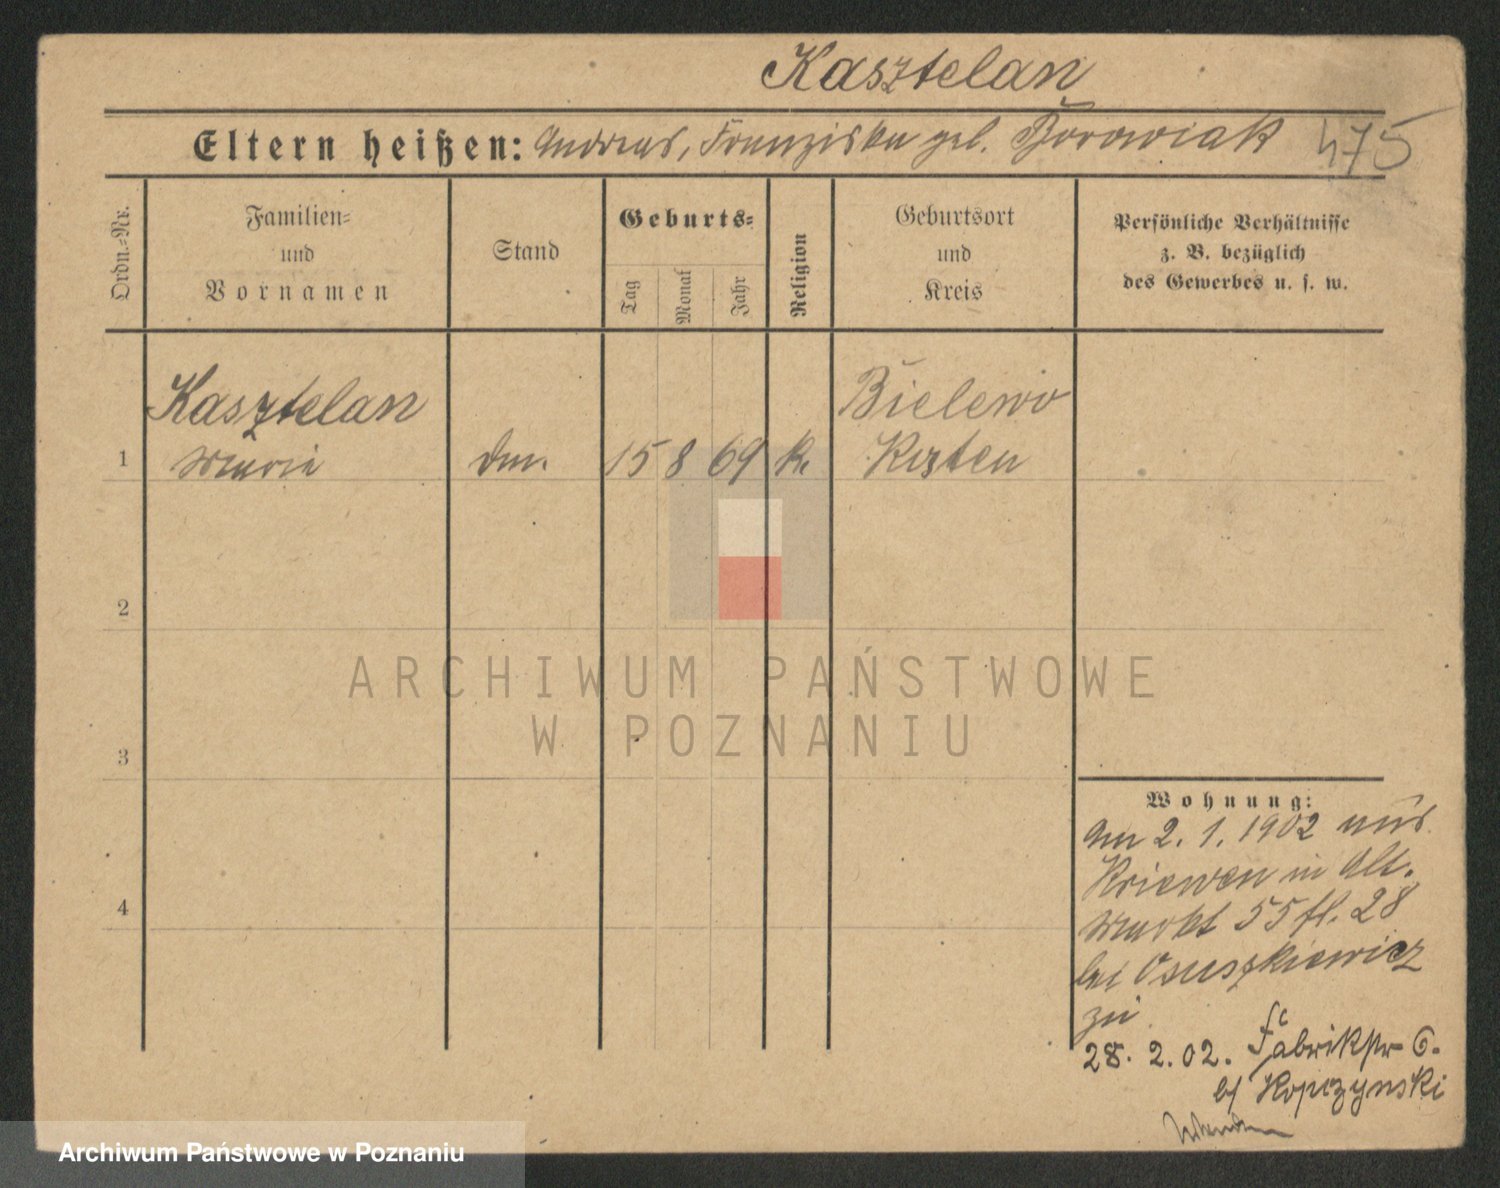 Kasztelan
Eltern heißen: Andreas, Franziska geb. Borowiak 475
Ordn.-Nr.
Familien-
und
Vornamen
Stand
Geburts-
Tag
Monat
Jahr
Religion
Geburtsort
und
Kreis
Persönliche Verhältnisse
z. B. bezüglich
des Gewerbes u. s. w.
Kasztelan Bielewo
1 Maria 15 8 69 k. Kosten
2
3
4
Wohnung:
Am 2. 1. 1902 aus
Kriewen in Alt.
Markt 55 fl. 28
bei Osuszkiewicz
zu
28. 2. 02. Fabrikstr 6.
b/ Kopczynski
ARCHIWUM PAŃSTWOWE
W POZNANIU
Archiwum Państwowe w Poznaniu